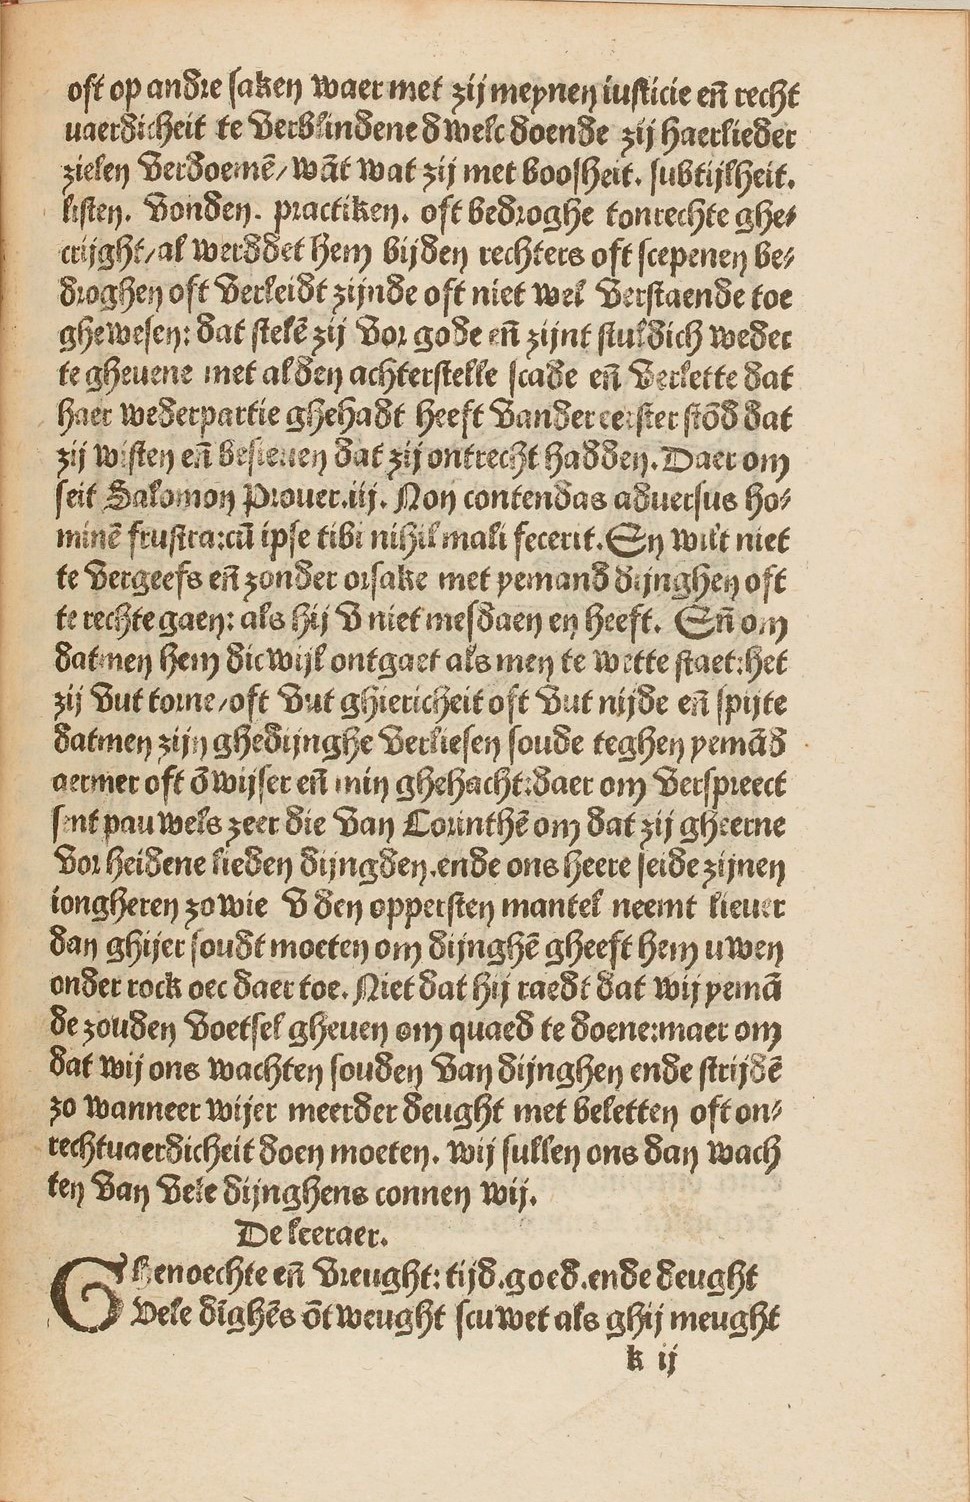 oft op andre saken waer met zij meynen iusticie eñ recht
uaerdicheit te verblindene dwelc doende zij haerlieder
zielen verdoemē/ wāt wat zij met boosheit. subtijlheit.
listen. vonden. practiken. oft bedroghe tonrechte ghe⸗
crijght/ al werddet hem bijden rechters oft scepenen be⸗
droghen oft verleidt zijnde oft niet wel verstaende toe
ghewesen: dat stelē zij vor gode eñ zijnt stuldich weder
te gheuene met alden achterstelle scade eñ verlette dat
haer wederpartie ghehadt heeft vander eerster stōd dat
zij wisten eñ beseuen dat zij ontrecht hadden. Daer om
seit Salomon Prouer.iij. Non contendas aduersus ho⸗
minē frustra: cū ipse tibi nihil mali fecerit. En wilt niet
te vergeefs eñ zonder orsake met yemand dijnghen oft
te rechte gaen: als hij v niet mesdaen en heeft. Eñ om
datmen hem dicwijl ontgaet als men te wette staet: het
zij vut torne/ oft vut ghiericheit oft vut nijde eñ spijte
datmen zijn ghedijnghe verliesen soude teghen yemād
aermer oft ōwijser eñ min ghehacht: daer om verspreect
sent pauwels zeer die van Corinthē om dat zij gheerne
vor heidene lieden dijngden. ende ons heere seide zijnen
iongheren zo wie v den oppersten mantel neemt lieuer
dan ghijer soudt moeten om dijnghē gheeft hem uwen
onder rock oec daer toe. Niet dat hij raedt dat wij yemā
de zouden voetsel gheuen om quaed te doene: maer om
dat wij ons wachten souden van dijnghen ende strijdē
zo wanneer wijer meerder deught met beletten oft on⸗
rechtuaerdicheit doen moeten. wij sullen ons dan wach
ten van vele dijnghens connen wij.
De leeraer.
Ghenoechte eñ vreught: tijd. goed. ende deught
Vele dīghēs ōtweught scuwet als ghij meught
k ij